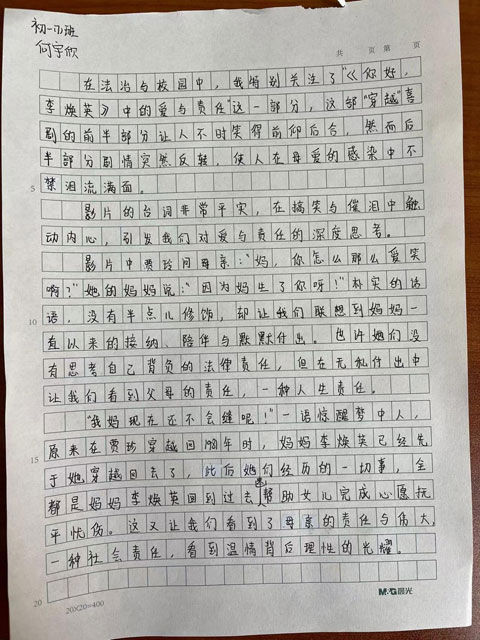 初一(1)班
何宇欣
共 页 第 页
在法治与校园中，我特别关注了“《你好，
李焕英》中的爱与责任”这一部分，这部“穿越”喜
剧的前半部分让人不时笑得前仰后合，然而后
半部分剧情突然反转，使人在母爱的感染中不
禁泪流满面。
5
影片的台词非常平实，在搞笑与催泪中触
动内心，引发我们对爱与责任的深度思考。
影片中贾玲问母亲：“妈，你怎么那么爱笑
啊？”她的妈妈说：“因为妈生了你呀！”朴实的话
语，没有半点儿修饰，却让我们联想到妈妈一
10
直以来的接纳、陪伴与默默付出。也许她们没
有思考自己背负的法律责任，但在无私付出中
让我们看到父母的责任，一种人生责任。
“我妈现在还不会缝呢！”一语惊醒梦中人，
原来在贾玲穿越回1981年时，妈妈李焕英已经先
15
于她穿越回去了，此后她们经历的一切事，全
都是妈妈李焕英回到过去帮助女儿完成心愿抚
平忧伤。这又让我们看到了母亲的责任与伟大，
一种社会责任，看到温情背后理性的光耀。
20
20X20=400
M&G晨光